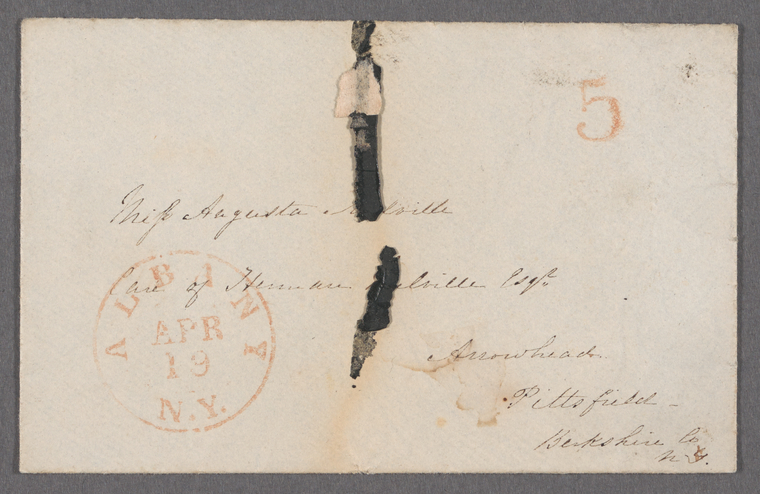 5
Miss Augusta Melville
Care of Herman Melville Esqr.
ALBANY
APR
19
N.Y.
Arrowhead
Pittsfield -
Berkshire Co